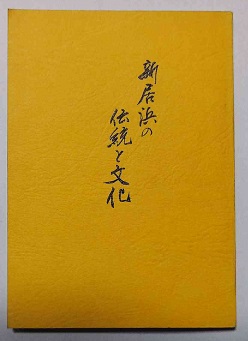 新居浜の
伝統と文化